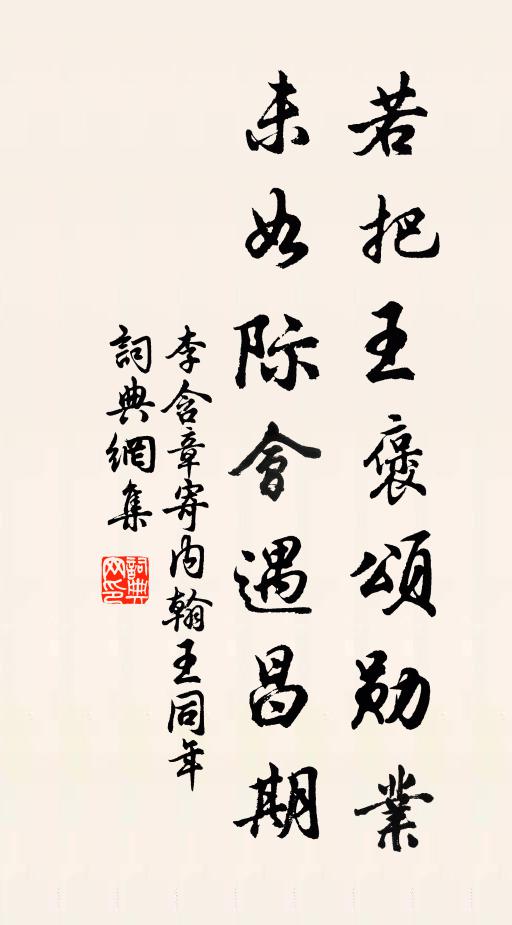 若把王褒頌勛業
未如际會遇昌期
李含章寄内翰王同年
詞典網集
詞典网印